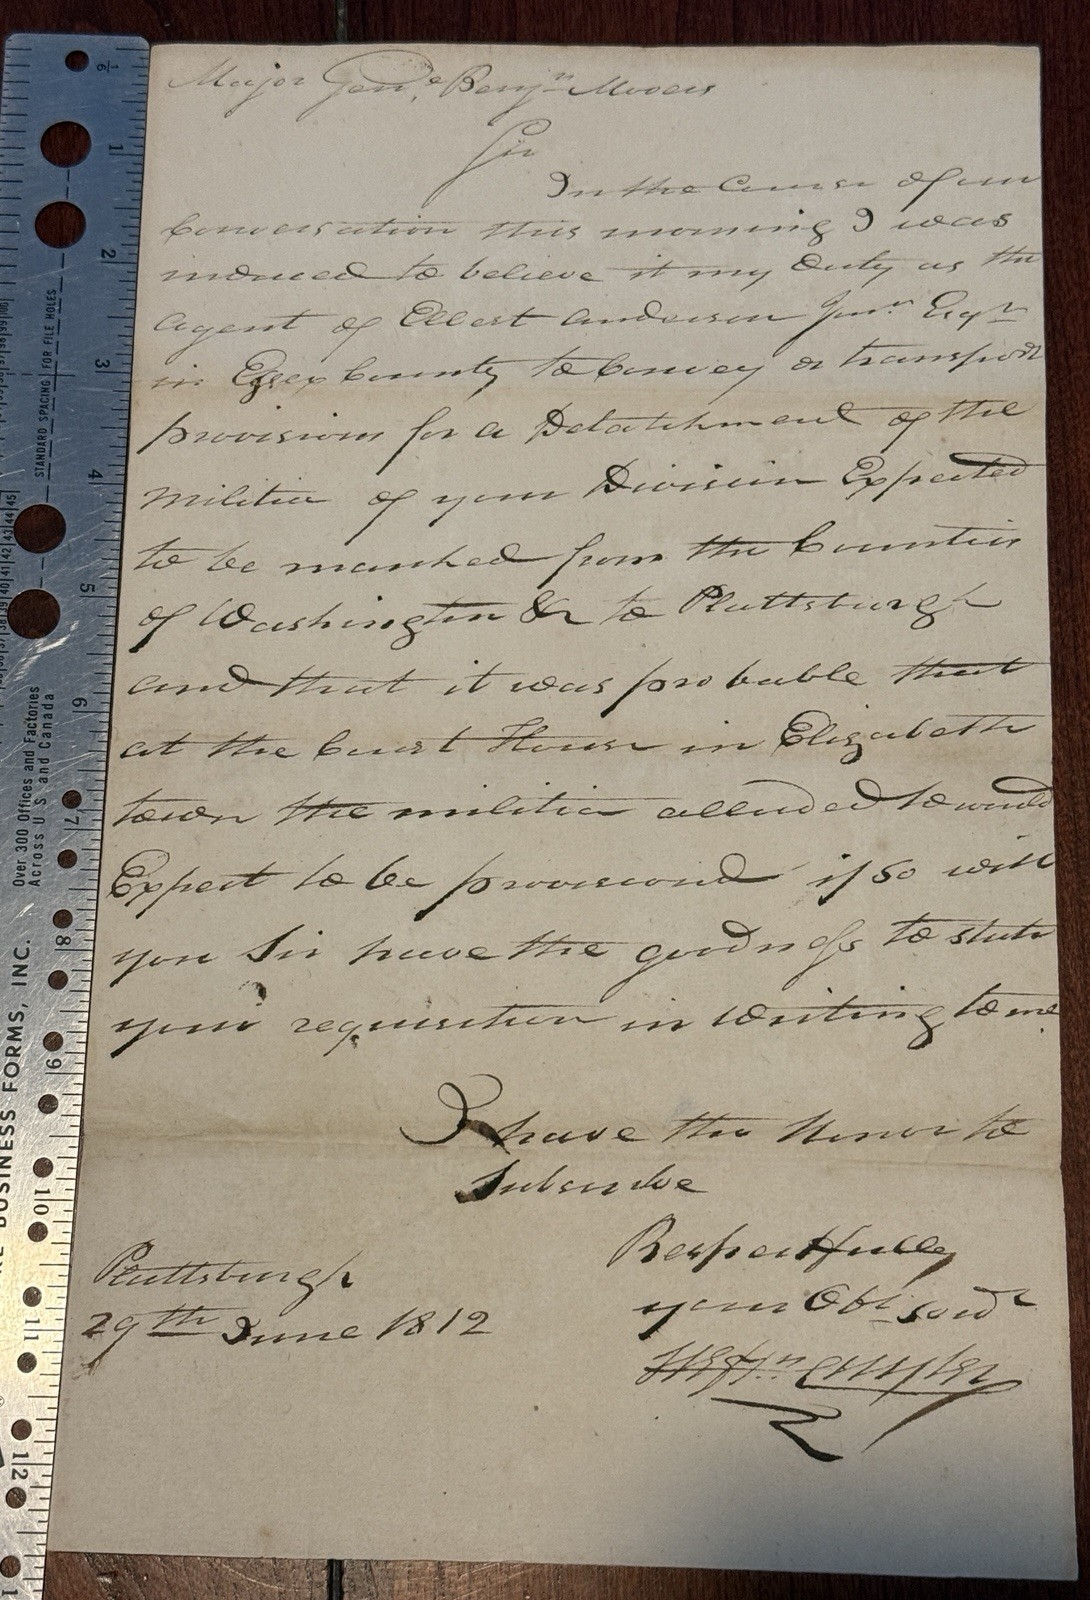 Major Genl. Benjn. Mooers
Sir
In the Course of our
Conversation this morning I was
induced to believe it my duty as the
agent of Elbert Anderson Junr. Esqr
in Essex County to Convey or transport
provisions for a Detatchment of the
militia of your Division Expected
to be marched from the Counties
of Washington &c to Plattsburgh
and that it was probable that
at the Court House in Elizabeth
town the militia alluded to would
Expect to be provisioned if so will
you Sir have the goodness to state
your requisition in writing to me
I have the Honor to
Subscribe
Respectfully
your Obt servt
Plattsburgh
29th June 1812
1/6
1
2
3
4
5
6
7
8
9
10
11
12
STANDARD SPACING FOR FILE HOLES
Over 300 Offices and Factories
Across U.S. and Canada
BUSINESS FORMS, INC.